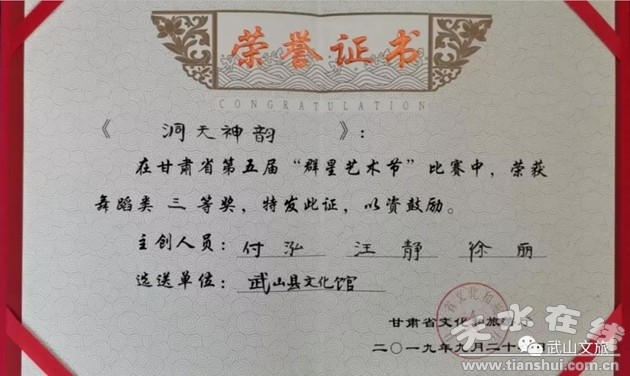 荣誉证书
CONGRATULATION
《 洞天神韵 》：
在甘肃省第五届“群星艺术节”比赛中，荣获
舞蹈类 三 等奖，特发此证，以资鼓励。
主创人员： 付泓 汪静 徐丽
选送单位：武山县文化馆
甘肃省文化和旅游厅
二〇一九年九月二十
天水在线
武山文旅
www.tianshui.com.cn